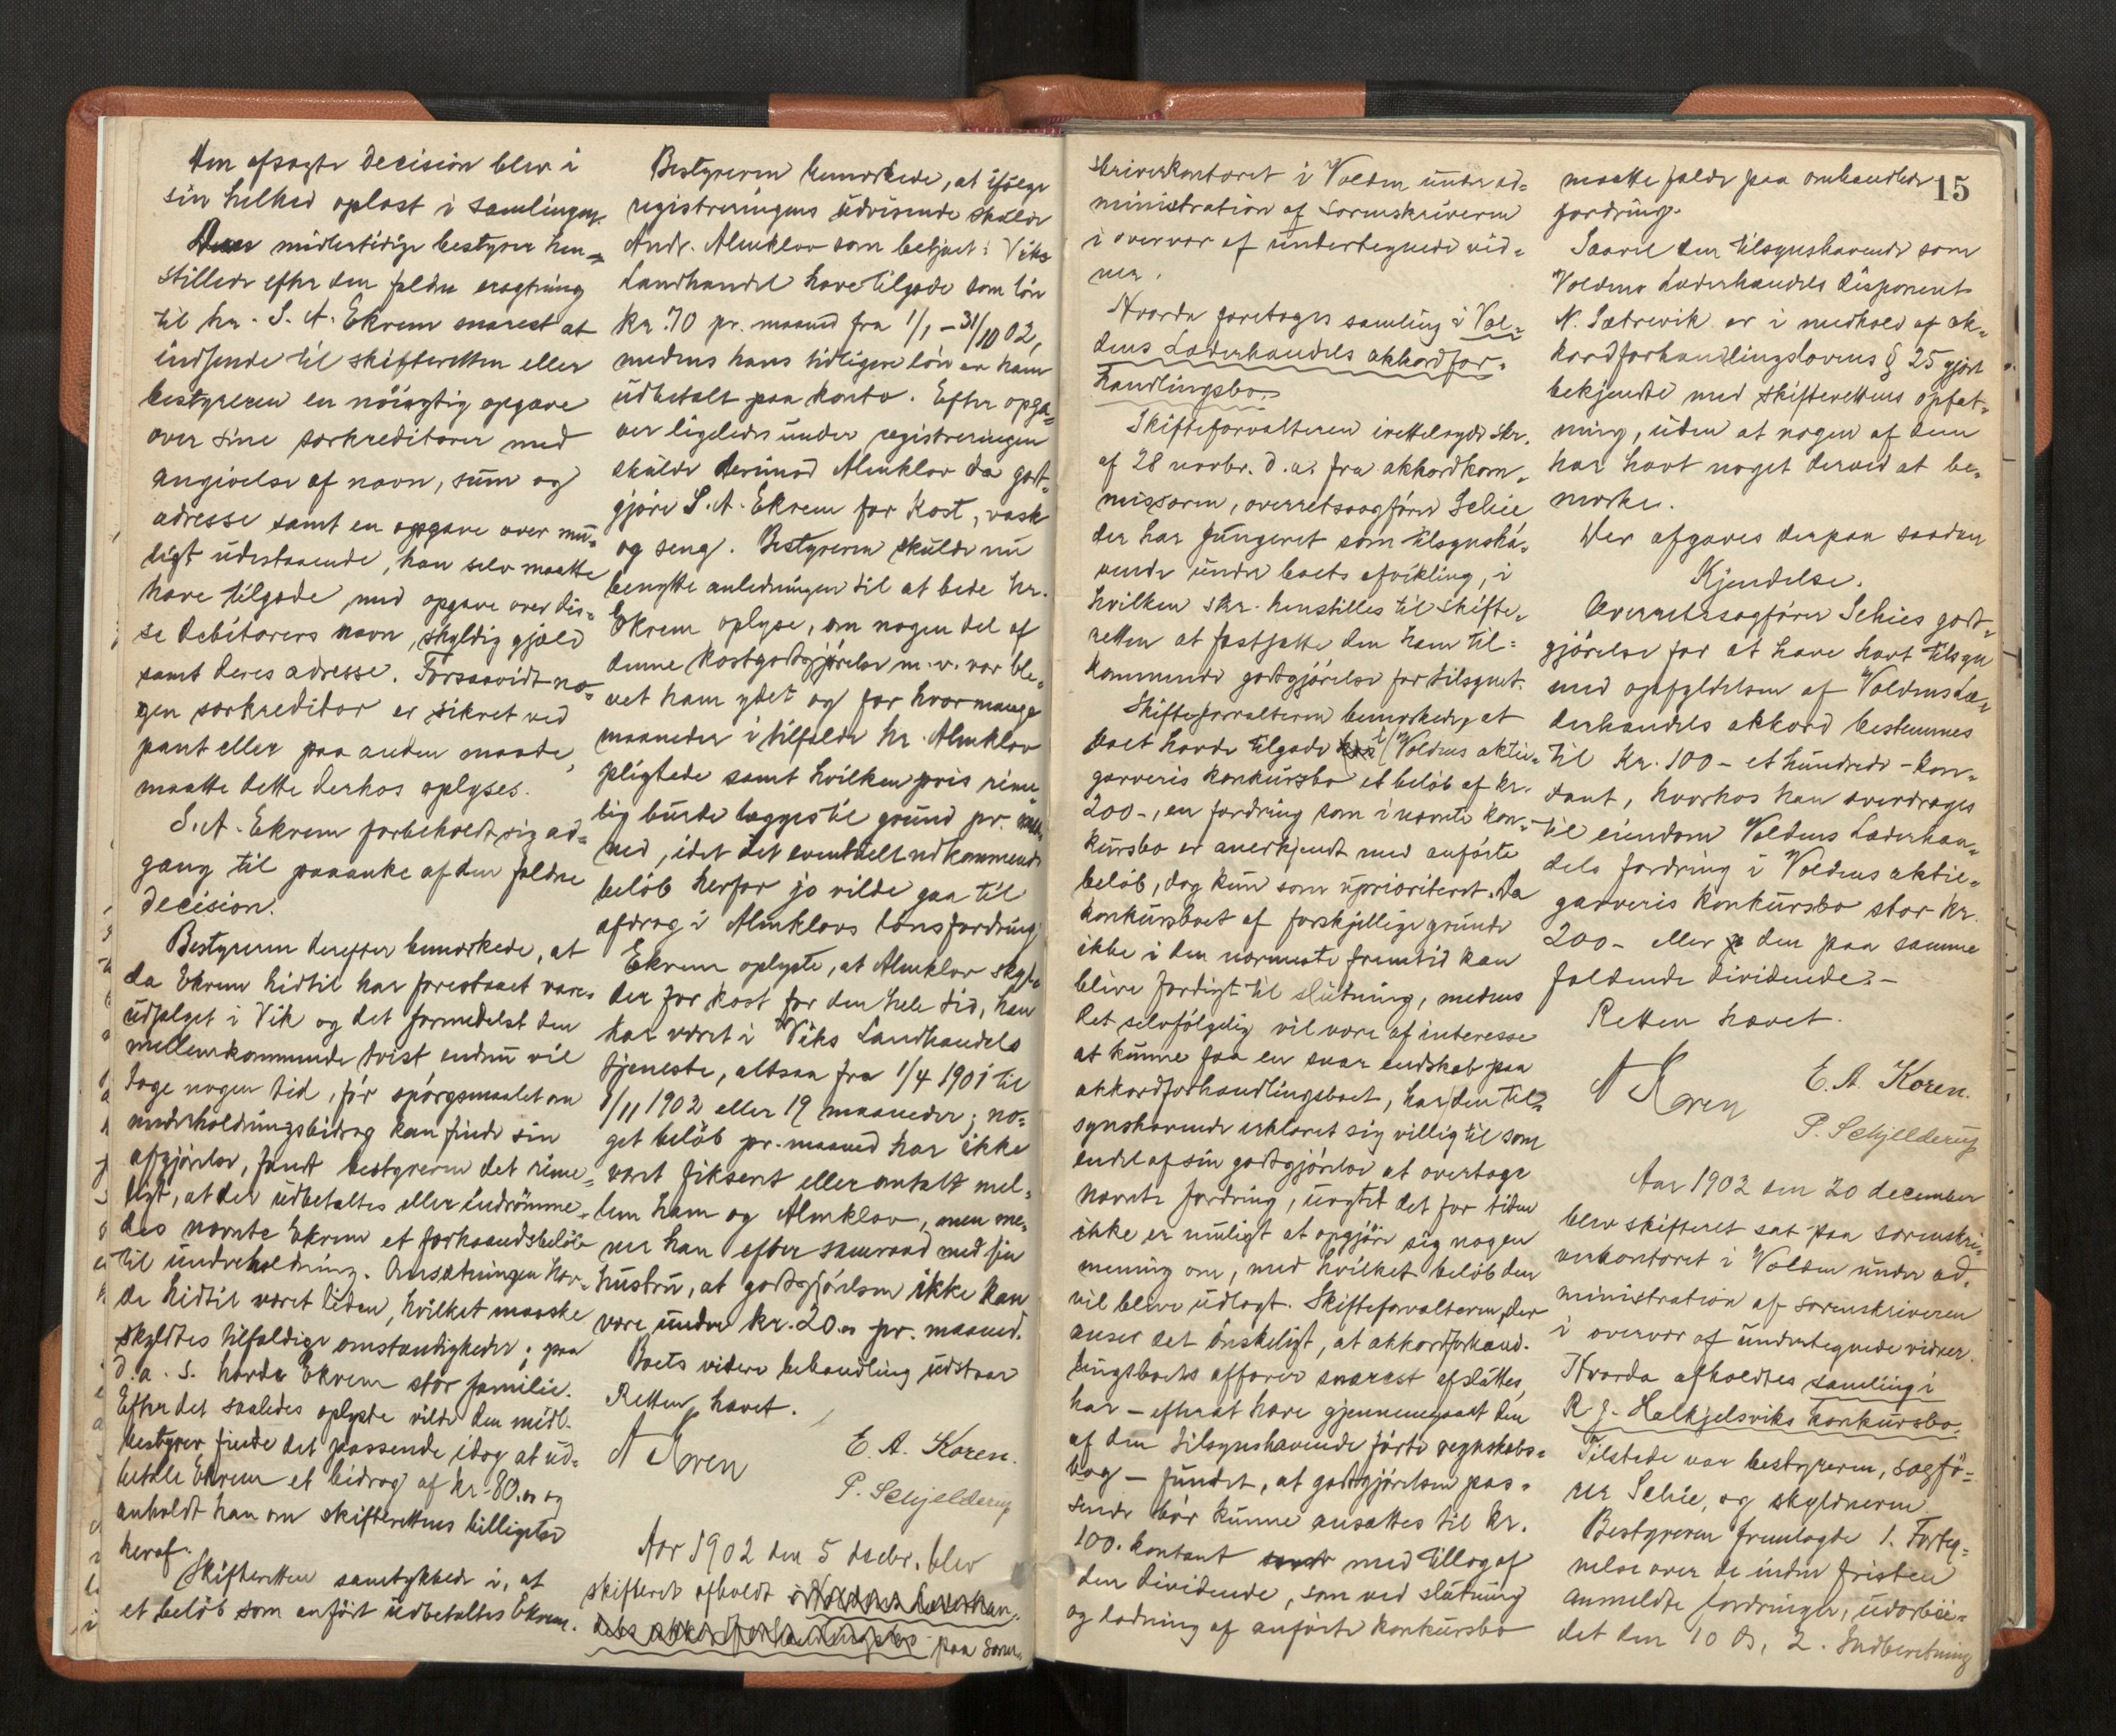 Den afsagte decision blev i
sin helhed oplæst i samlingen.
Den midlertidige bestyrer hen=
stillede efter den faldne eragtning
til hr. S. A. Ekrem snarest at
indsende til skifteretten eller
bestyreren en nöiagtig opgave
over sine særkreditorer med
angivelse af navn, sum og
adresse samt en opgave over mu=
ligt udestaaende, han selv maatte
have tilgode med opgave over dis=
se debitorers navn, skyldig gjæld
samt deres adresse. Forsaavidt no=
gen særkreditor er sikret ved
pant eller paa anden maade,
maatte dette derhos oplyses.
S. A. Ekrem forbeholdt sig ad=
gang til paaanke af den faldne
decision.
Bestyreren derefter bemærkede, at
da Ekrem hidtil har forestaaet vare=
udsalget i Vik og det formedelst den
mellemkommende tvist endnu vil
tage nogen tid, för spörgsmaalet om
underholdningsbidrag kan finde sin
afgjörelse, fandt bestyreren det rime=
ligt, at der udbetaltes eller indrömme=
des nævnte Ekrem et forhaandsbelöb
til underholdning. Omsætningen hav=
de hidtil været liden, hvilket maaske
skyldtes tilfældige omstændigheder; paa
d. a. s. havde Ekrem stor familie.
Efter det saaledes oplyste vilde den midl.
bestyrer finde det passende idag at ud=
betale Ekrem et bidrag af kr. 80.00 og
anholdt han om skifterettens billigelse
heraf.
Skifteretten samtykkede i, at
et belöb som anfört udbetaltes Ekrem.
Bestyreren bemærkede, at ifölge
registreringens udvisende skulde
Andr. Almklov som betjent i Viks
Landhandel have tilgode som lön
kr. 70 pr. maaned fra 1/1 – 31/10 02,
medens hans tidligere lön er ham
udbetalt paa konto. Efter opga=
ver ligeledes under registreringen
skulde derimod Almklov da godt=
gjöre S. A. Ekrem for kost, vask
og seng. Bestyreren skulde nu
benytte anledningen til at bede hr.
Ekrem oplyse, om nogen del af
denne kostgodtgjörelse m. v. var ble=
vet ham ydet og for hvor mange
maaneder i tilfælde hr. Almklov
pligtede samt hvilken pris rime=
lig burde lægges til grund pr. maa=
ned, idet det eventuelt udkommende
belöb herfor jo vilde gaa til
afdrag i Almklovs lönsfordring.
Ekrem oplyste, at Almklov skyl=
der for kost for den hele tid, han
har været i Viks Landhandels
tjeneste, altsaa fra 1/4 1901 til
1/11 1902 eller 19 maaneder; no=
get belöb pr. maaned har ikke
været fikseret eller antalt mel=
lem ham og Almklov, men me=
ner han efter samraad med sin
hustru, at godtgjörelsen ikke kan
være under kr. 20.00 pr. maaned.
Boets videre behandling udstaar
Retten hævet.
A Koren
E. A. Koren.
P. Schjelderup
Aar 1902 den 5 decbr. blev
skifteret afholdt i Voldens Læderhan=
dels akkordforhandlingsbo paa soren=
15
skriverkontoret i Volden under ad=
ministration af sorenskriveren
i overvær af undertegnede vid=
ner.
Hvorda foretoges samling i Vol=
dens Læderhandels akkordfor=
handlingsbo.
Skifteforvalteren irettelagde skr.
af 28 novbr. d. a. fra akkordkom=
missæren, overretssagförer Schie
der har fungeret som tilsynsha=
vende under boets afvikling, i
hvilken skr. henstilles til skifte=
retten at fastsætte den ham til=
kommende godtgjörelse for tilsynet.
Skifteforvalteren bemærkede, at
boet havde tilgode hos i Voldens aktie=
garveris konkursbo et belöb af kr.
200-, en fordring som i nævnte kon=
kursbo er anerkjendt med anförte
belöb, dog kun som uprioriteret. Da
konkursboet af forskjellige grunde
ikke i den nærmeste fremtid kan
blive færdigt til slutning, medens
det selvfölgelig vil være af interesse
at kunne faa en snar endskab paa
akkordforhandlingsboet, har den til=
synshavende erklæret sig villig til som
endel af sin godtgjörelse at overtage
nævnte fordring, uagtet det for tiden
ikke er muligt at opgjöre sig nogen
mening om, med hvilket belöb den
vil blive udlagt. Skifteforvalteren, der
anser det önskeligt, at akkordforhand=
lingsboets affærer snarest afsluttes,
har – efterat have gjennemgaaet den
af den tilsynshavende förte regnskabs=
bog – fundet, at godtgjörelsen pas=
sende bör kunne ansættes til kr.
100. kontant samt med tillæg af
den dividende, som ved slutning
og lodning af anförte konkursbo
maatte falde paa omhandlede
fordring.
Saavel den tilsynshavende som
Voldens Læderhandels disponent
N. Sætrevik er i medhold af ak=
kordforhandlingslovens § 25 gjort
bekjendte med skifterettens opfat=
ning, uden at nogen af dem
har havt noget derved at be=
mærke.
Der afgaves derpaa saadan
Kjendelse.
Overretssagförer Schies godt=
gjörelse for at have havt tilsyn
med opfyldelsen af Voldens Læ=
derhandels akkord bestemmes
til kr. 100 – et hundrede – kon=
tant, hvorhos han overdrages
til eiendom Voldens Læderhan=
dels fordring i Voldens aktie=
garveris konkursbo stor kr.
200- eller den paa samme
faldende dividende.-
Retten hævet.
A Koren
E. A. Koren.
P. Schjelderup
Aar 1902 den 20 december
blev skifteret sat paa sorenskri=
verkontoret i Volden under ad=
ministration af sorenskriveren
i overvær af undertegnede vidner.
Hvorda afholdtes samling i
R. J. Halkjelsviks konkursbo.
Tilstede var bestyreren, sagfö=
rer Schie, og skyldneren.
Bestyreren fremlagde 1. Forteg=
nelse over de inden fristen
anmeldte fordringer, udarbei=
det den 10 ds, 2. Indberetning